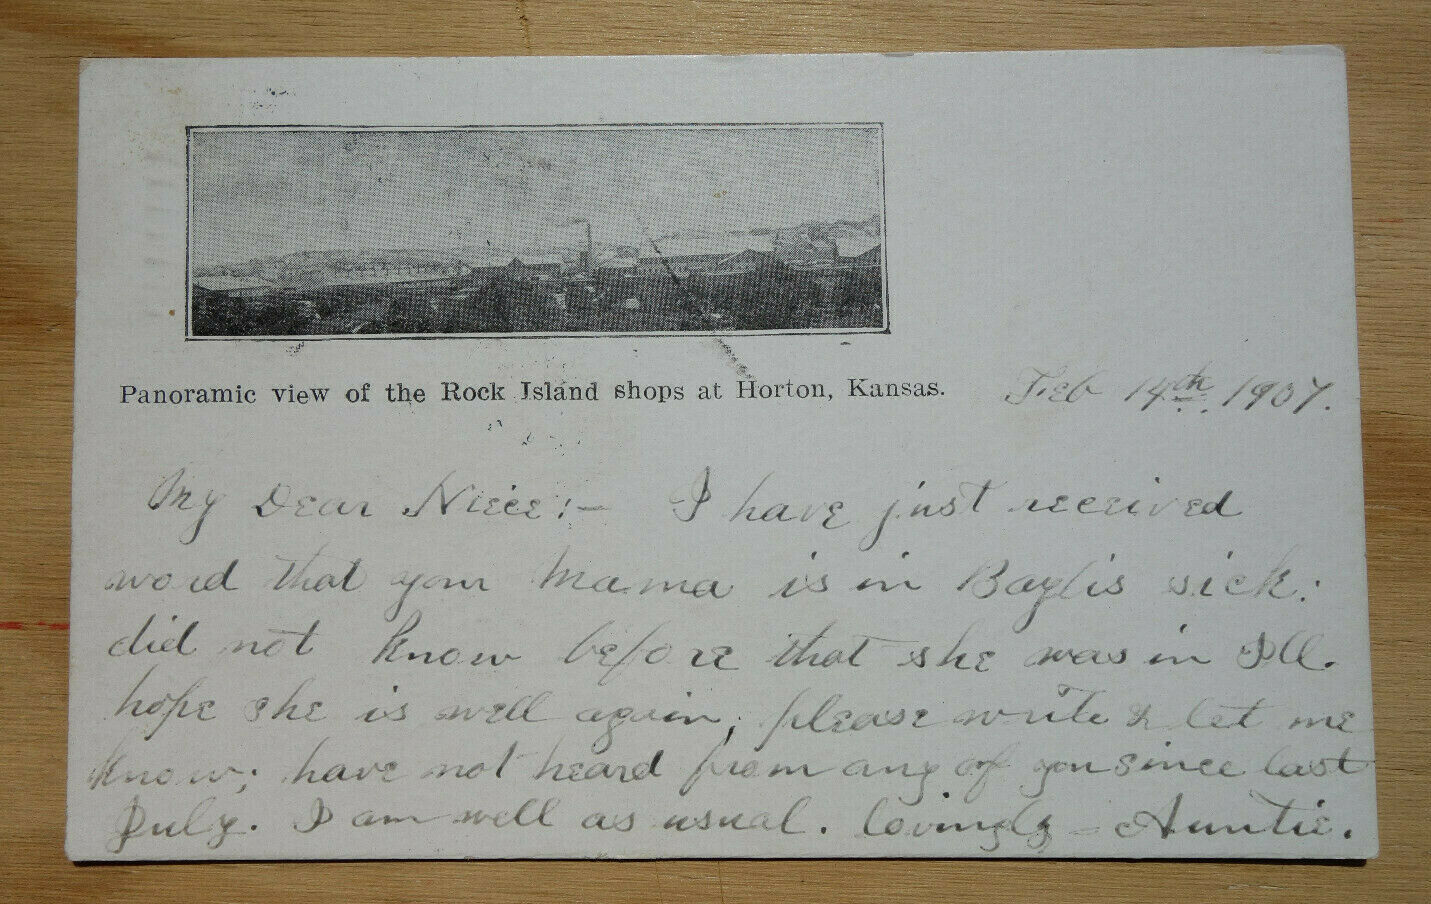 Panoramic view of the Rock Island shops at Horton, Kansas.
Feb 14th. 1907.
My Dear Niece:- I have just received
word that your Mama is in Baylis sick:
did not know before that she was in Ill.
hope she is well again; please write & let me
know; have not heard from any of you since last
July. I am well as usual. lovingly - Auntie.